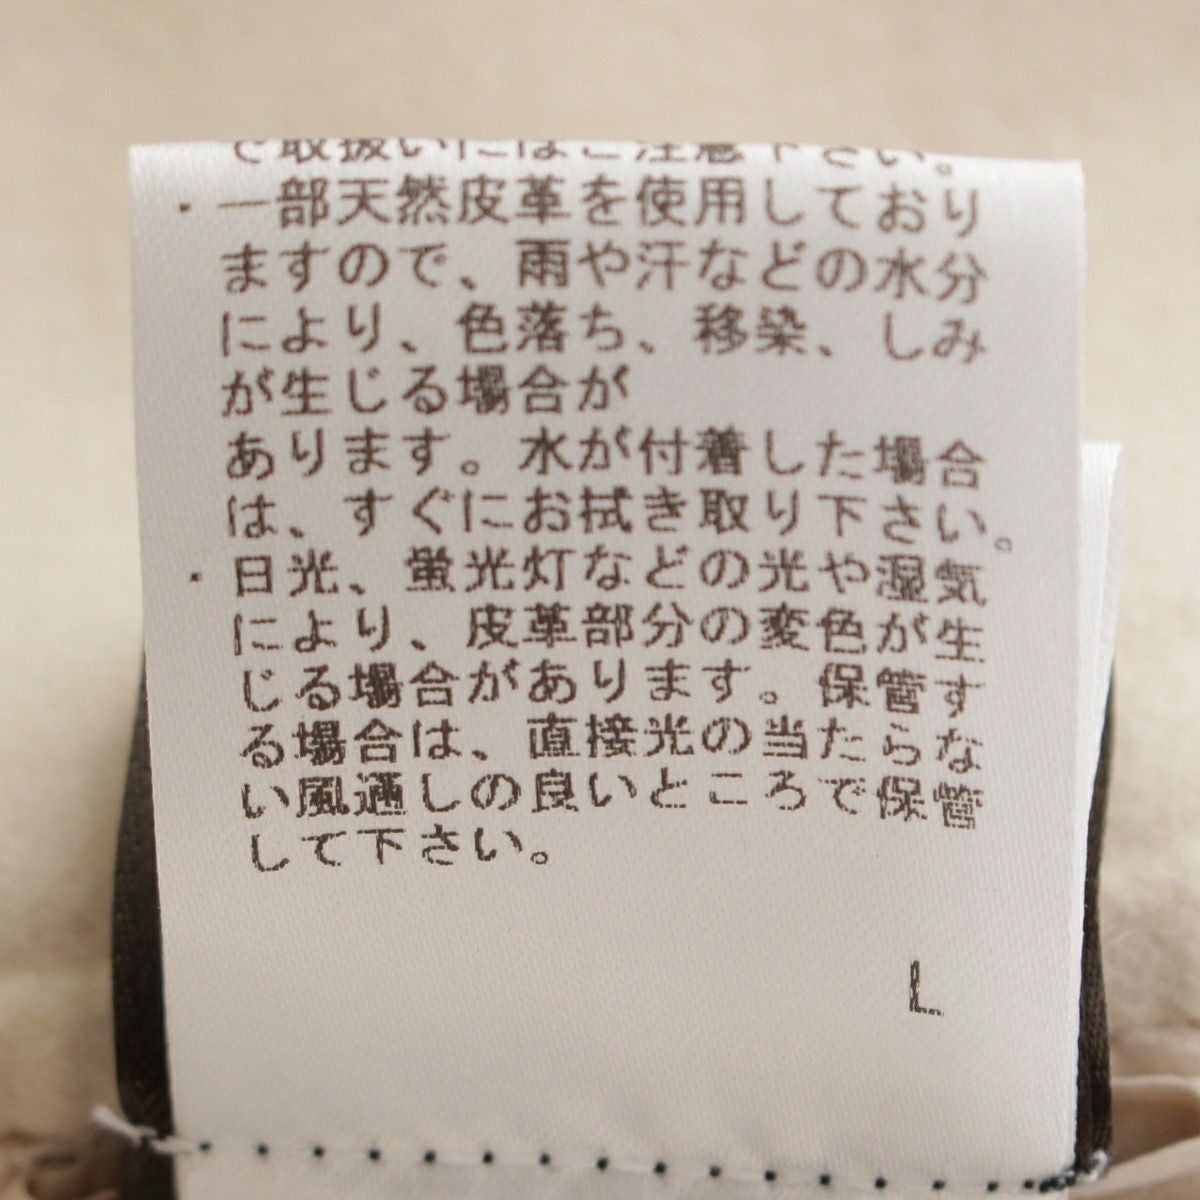 で取扱いにはご注意下さい。
・一部天然皮革を使用しており
ますので、雨や汗などの水分
により、色落ち、移染、しみ
が生じる場合が
あります。水が付着した場合
は、すぐにお拭き取り下さい。
・日光、蛍光灯などの光や湿気
により、皮革部分の変色が生
じる場合があります。保管す
る場合は、直接光の当たらな
い風通しの良いところで保管
して下さい。
L